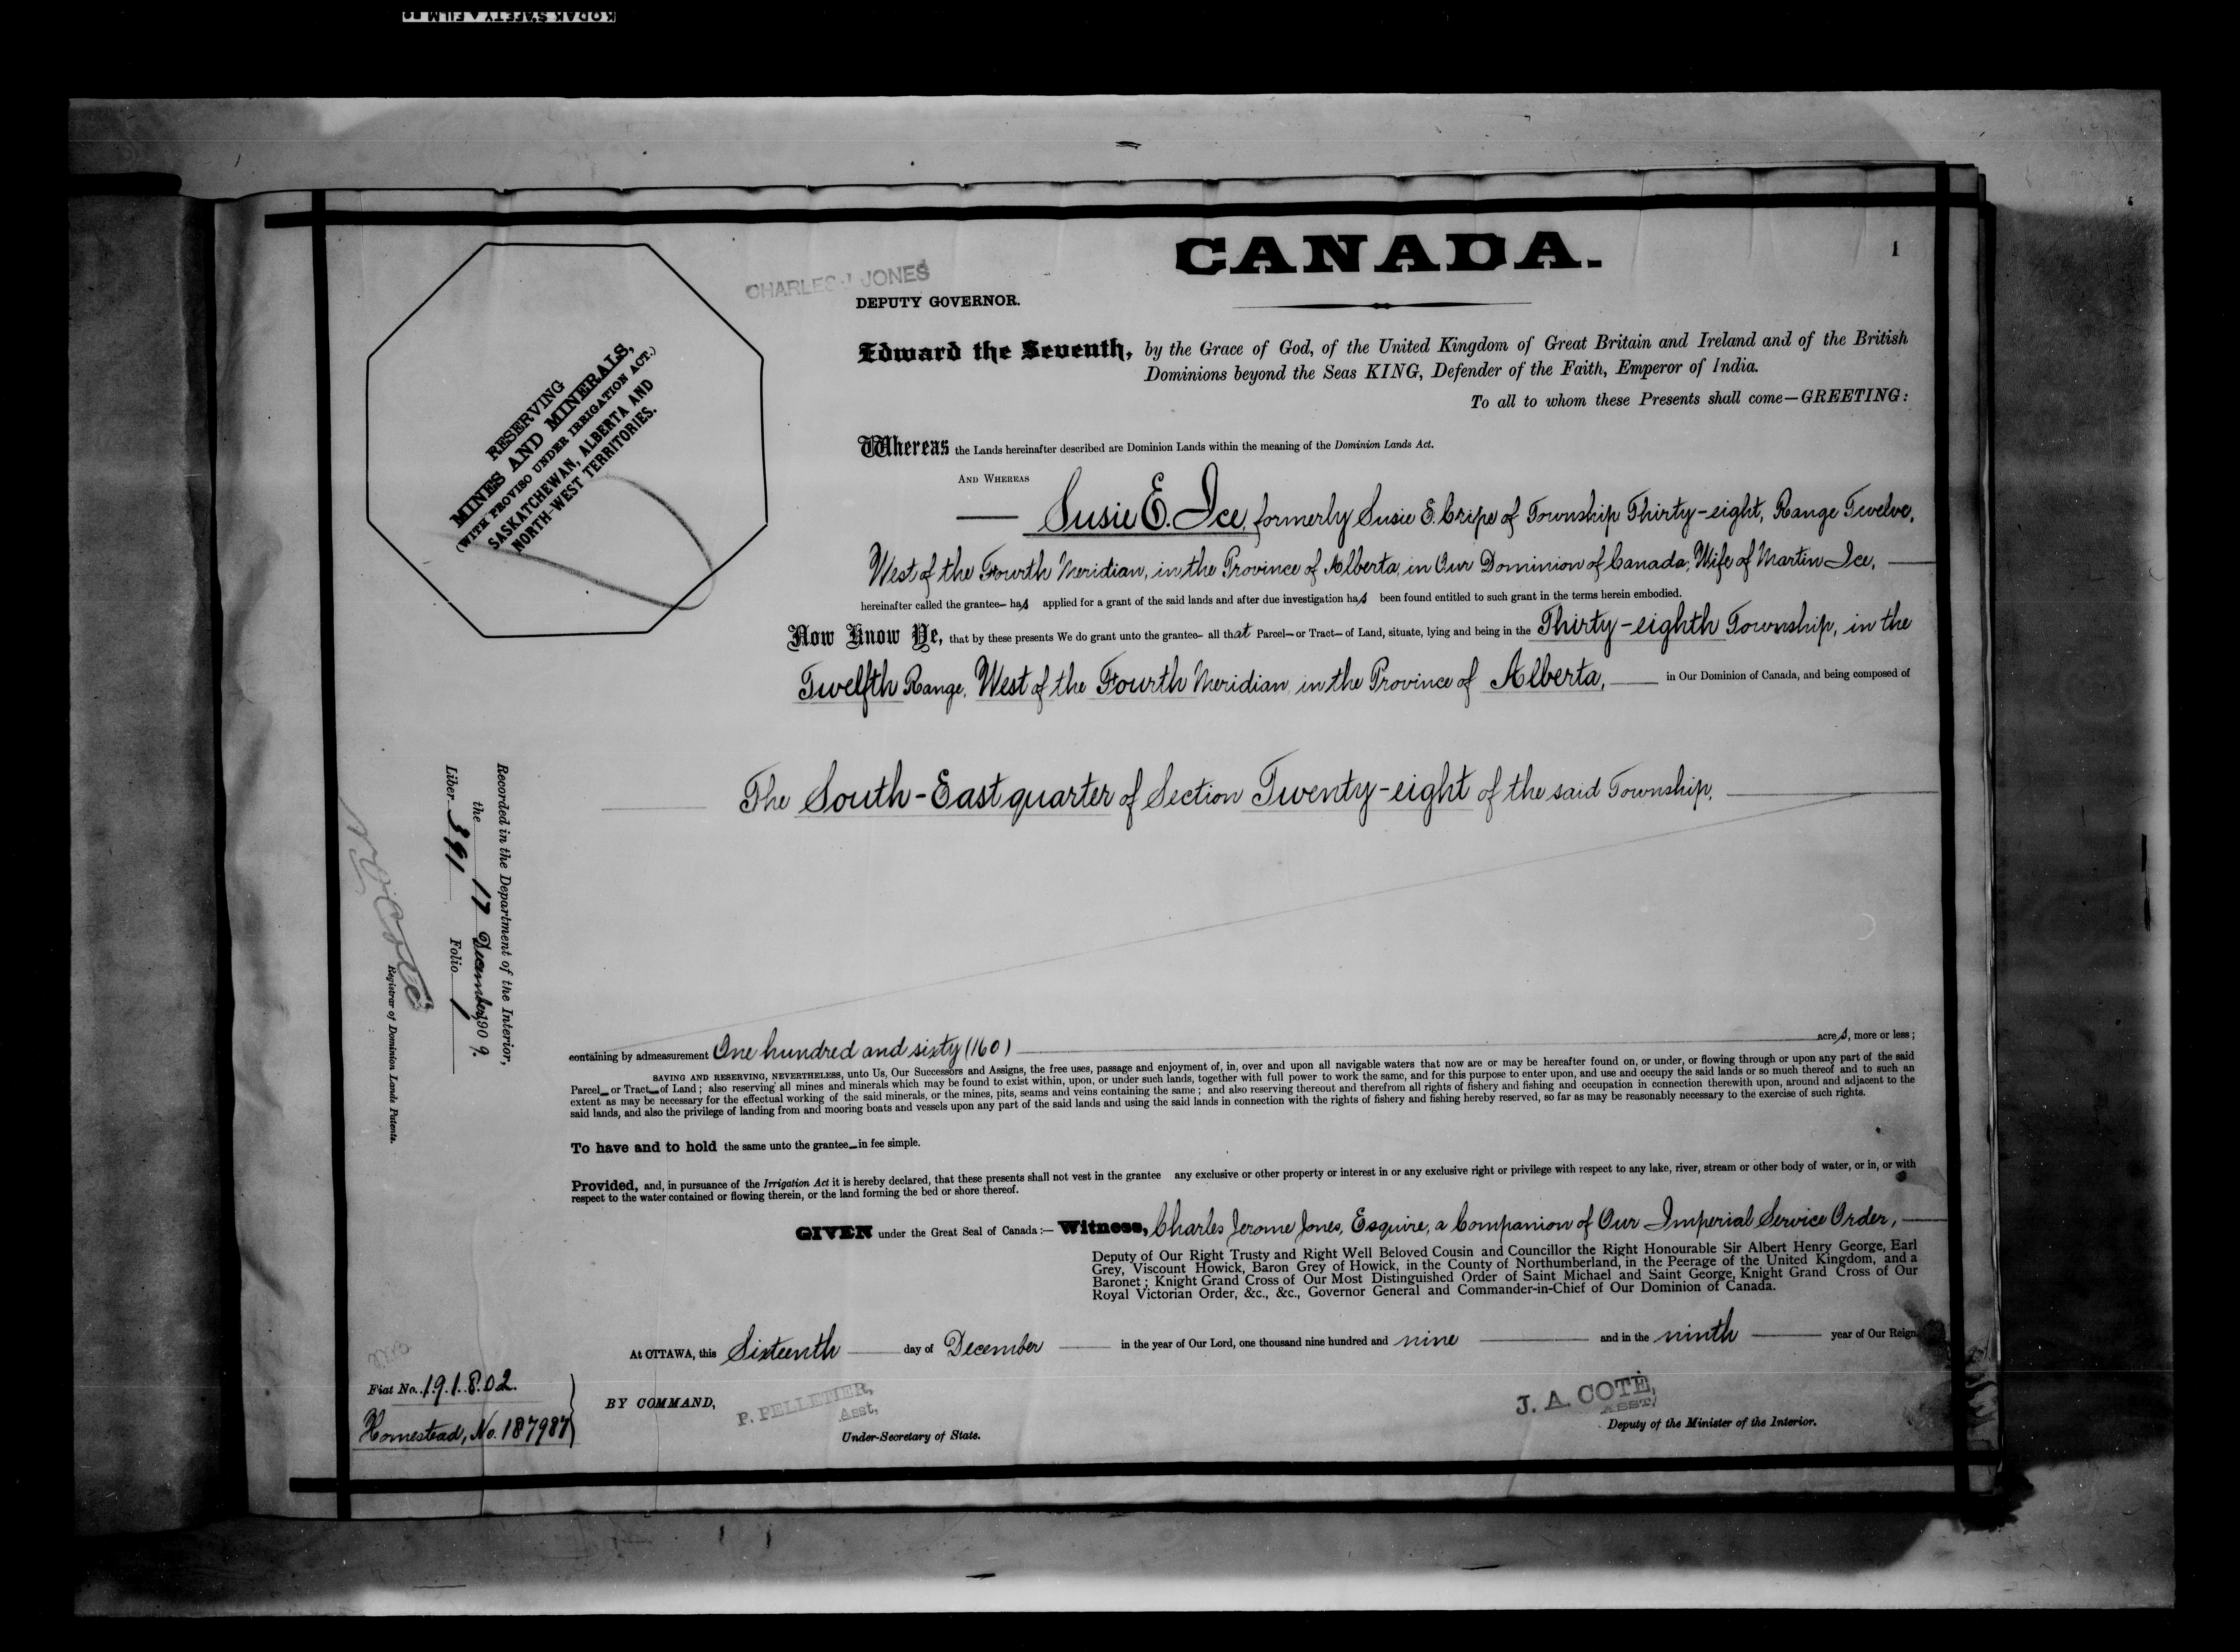 KODAK SAFETY FILM
CANADA.
1
CHARLES J JONES
DEPUTY GOVERNOR.
Edward the Seventh, by the Grace of God, of the United Kingdom of Great Britain and Ireland and of the British
Dominions beyond the Seas KING, Defender of the Faith, Emperor of India.
To all to whom these Presents shall come—GREETING:
RESERVING
MINES AND MINERALS,
(WITH PROVISO UNDER IRRIGATION ACT.)
SASKATCHEWAN, ALBERTA AND
NORTH-WEST TERRITORIES.
Whereas the Lands hereinafter described are Dominion Lands within the meaning of the Dominion Lands Act.
AND WHEREAS
Susie E. Ice, formerly Susie E. Cripe of Township Thirty-eight, Range Twelve,
West of the Fourth Meridian, in the Province of Alberta, in Our Dominion of Canada, Wife of Martin Ice,
hereinafter called the grantee— has applied for a grant of the said lands and after due investigation has been found entitled to such grant in the terms herein embodied.
Now Know Ye, that by these presents We do grant unto the grantee— all that Parcel— or Tract— of Land, situate, lying and being in the Thirty-eighth Township, in the
Twelfth Range, West of the Fourth Meridian, in the Province of Alberta, in Our Dominion of Canada, and being composed of
The South-East quarter of Section Twenty-eight of the said Township,
Recorded in the Department of the Interior,
the 17 December 1909.
Liber 391 Folio 1
Registrar of Dominion Lands Patents.
containing by admeasurement One hundred and sixty (160) acres, more or less;
SAVING AND RESERVING, NEVERTHELESS, unto Us, Our Successors and Assigns, the free uses, passage and enjoyment of, in, over and upon all navigable waters that now are or may be hereafter found on, or under, or flowing through or upon any part of the said
Parcel— or Tract— of Land; also reserving all mines and minerals which may be found to exist within, upon, or under such lands, together with full power to work the same, and for this purpose to enter upon, and use and occupy the said lands or so much thereof and to such an
extent as may be necessary for the effectual working of the said minerals, or the mines, pits, seams and veins containing the same; and also reserving thereout and therefrom all rights of fishery and fishing and occupation in connection therewith upon, around and adjacent to the
said lands, and also the privilege of landing from and mooring boats and vessels upon any part of the said lands and using the said lands in connection with the rights of fishery and fishing hereby reserved, so far as may be reasonably necessary to the exercise of such rights.
To have and to hold the same unto the grantee— in fee simple.
Provided, and, in pursuance of the Irrigation Act it is hereby declared, that these presents shall not vest in the grantee any exclusive or other property or interest in or any exclusive right or privilege with respect to any lake, river, stream or other body of water, or in, or with
respect to the water contained or flowing therein, or the land forming the bed or shore thereof.
GIVEN under the Great Seal of Canada:— Witness, Charles Jerome Jones, Esquire, a Companion of Our Imperial Service Order,
Deputy of Our Right Trusty and Right Well Beloved Cousin and Councillor the Right Honourable Sir Albert Henry George, Earl
Grey, Viscount Howick, Baron Grey of Howick, in the County of Northumberland, in the Peerage of the United Kingdom, and a
Baronet; Knight Grand Cross of Our Most Distinguished Order of Saint Michael and Saint George, Knight Grand Cross of Our
Royal Victorian Order, &c., &c., Governor General and Commander-in-Chief of Our Dominion of Canada.
At OTTAWA, this Sixteenth day of December in the year of Our Lord, one thousand nine hundred and nine and in the ninth year of Our Reign.
Fiat No. 191802.
Homestead, No. 187987
BY COMMAND,
P. PELLETIER,
Asst,
Under-Secretary of State.
J. A. COTÉ,
ASST,
Deputy of the Minister of the Interior.